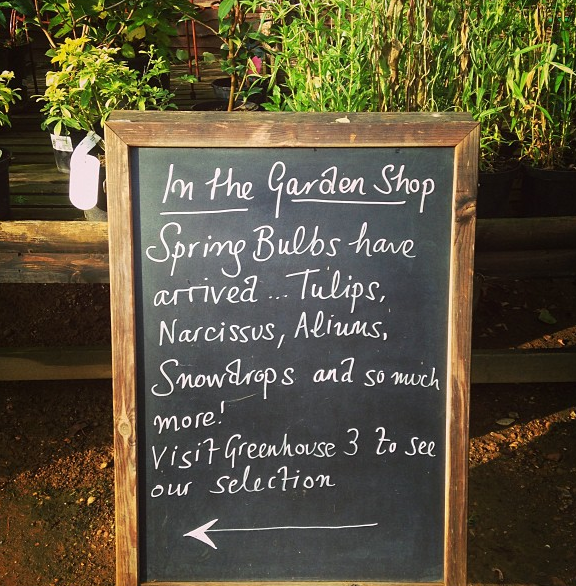 In the Garden Shop
Spring Bulbs have
arrived... Tulips,
Narcissus, Aliums,
Snowdrops and so much
more!
Visit Greenhouse 3 to see
our selection